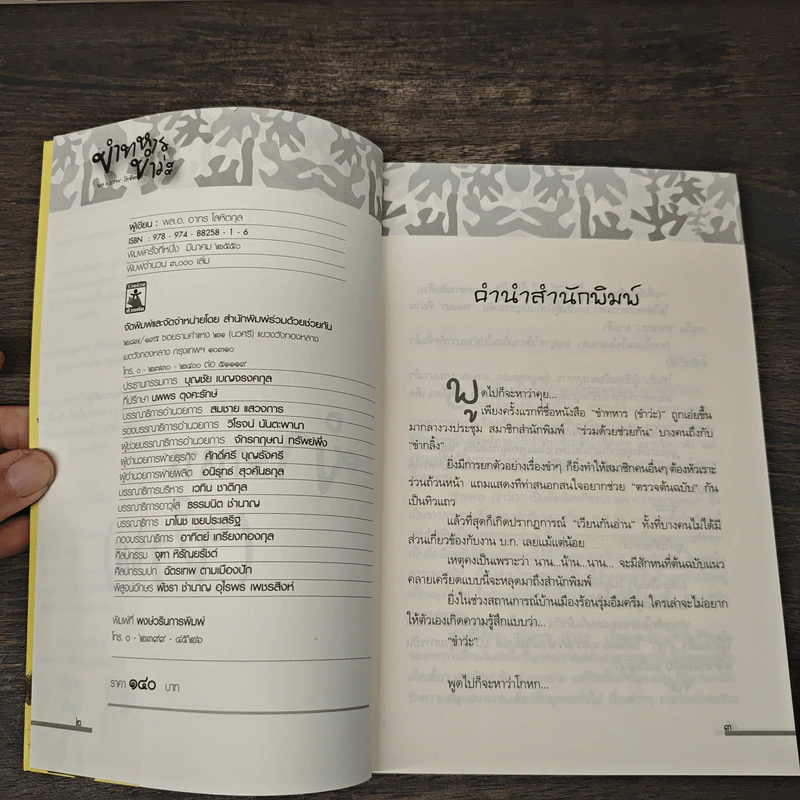 ขำทหาร
ขำว่ะ
ผู้เขียน : พล.อ. อาทร โลหิตกุล
ISBN : 978 - 974 - 88258 - 1 - 6
พิมพ์ครั้งที่หนึ่ง มีนาคม ๒๕๕๐
พิมพ์จำนวน ๓,๐๐๐ เล่ม
ร่วมด้วย
ช่วยกัน
จัดพิมพ์และจัดจำหน่ายโดย สำนักพิมพ์ร่วมด้วยช่วยกัน
๒๔๗/๑๙๕ ซอยรามคำแหง ๒๑ (นวศรี) แขวงวังทองหลาง
เขตวังทองหลาง กรุงเทพฯ ๑๐๓๑๐
โทร. ๐ - ๒๗๓๐ - ๒๔๐๐ ต่อ ๕๑๑๑๙
ประธานกรรมการ บุญชัย เบญจรงคกุล
ที่ปรึกษา นพพร ตุงคะรักษ์
บรรณาธิการอำนวยการ สมชาย แสวงการ
รองบรรณาธิการอำนวยการ วิโรจน์ นันตะพานา
ผู้ช่วยบรรณาธิการอำนวยการ จักรกฤษณ์ ทรัพย์พึ่ง
ผู้อำนวยการฝ่ายธุรกิจ ศักดิ์ศรี บุญรังศรี
ผู้อำนวยการฝ่ายผลิต อนิรุทธ์ สุวคันธกุล
บรรณาธิการบริหาร เวทิน ชาติกุล
บรรณาธิการอาวุโส ธรรมนิต ชำนาญ
บรรณาธิการ มาโนช เชยประเสริฐ
กองบรรณาธิการ อาทิตย์ เกรียงทองกุล
ศิลปกรรม จุฑา หิรัณยรัชต์
ศิลปกรรมปก ฉัตรเทพ ตามเมืองปัก
พิสูจน์อักษร พัชรา ชำนาญ อุไรพร เพชรสิงห์
พิมพ์ที่ พงษ์วรินการพิมพ์
โทร. ๐ - ๒๓๙๙ - ๔๕๒๖
ราคา ๑๔๐ บาท
๒
คำนำสำนักพิมพ์
พูดไปก็จะหาว่าคุย...
เพียงครั้งแรกที่ชื่อหนังสือ “ขำทหาร (ขำว่ะ)” ถูกเอ่ยขึ้น
มากลางวงประชุม สมาชิกสำนักพิมพ์ “ร่วมด้วยช่วยกัน” บางคนถึงกับ
“ขำกลิ้ง”
ยิ่งมีการยกตัวอย่างเรื่องขำๆ ก็ยิ่งทำให้สมาชิกคนอื่นๆ ต้องหัวเราะ
ร่วนถ้วนหน้า แถมแสดงทีท่าสนอกสนใจอยากช่วย “ตรวจต้นฉบับ” กัน
เป็นทิวแถว
แล้วที่สุดก็เกิดปรากฏการณ์ “เวียนกันอ่าน” ทั้งที่บางคนไม่ได้มี
ส่วนเกี่ยวข้องกับงาน บ.ก. เลยแม้แต่น้อย
เหตุคงเป็นเพราะว่า นาน...น้าน...นาน... จะมีสักหนที่ต้นฉบับแนว
คลายเครียดแบบนี้จะหลุดมาถึงสำนักพิมพ์
ยิ่งในช่วงสถานการณ์บ้านเมืองร้อนรุ่มอึมครึม ใครเล่าจะไม่อยาก
ให้ตัวเองเกิดความรู้สึกแบบว่า...
“ขำว่ะ”
พูดไปก็จะหาว่าโกหก...
๓